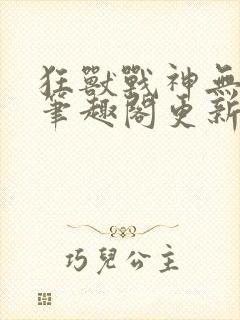 狂獸戰神無
筆趣閣更新
巧兒公主